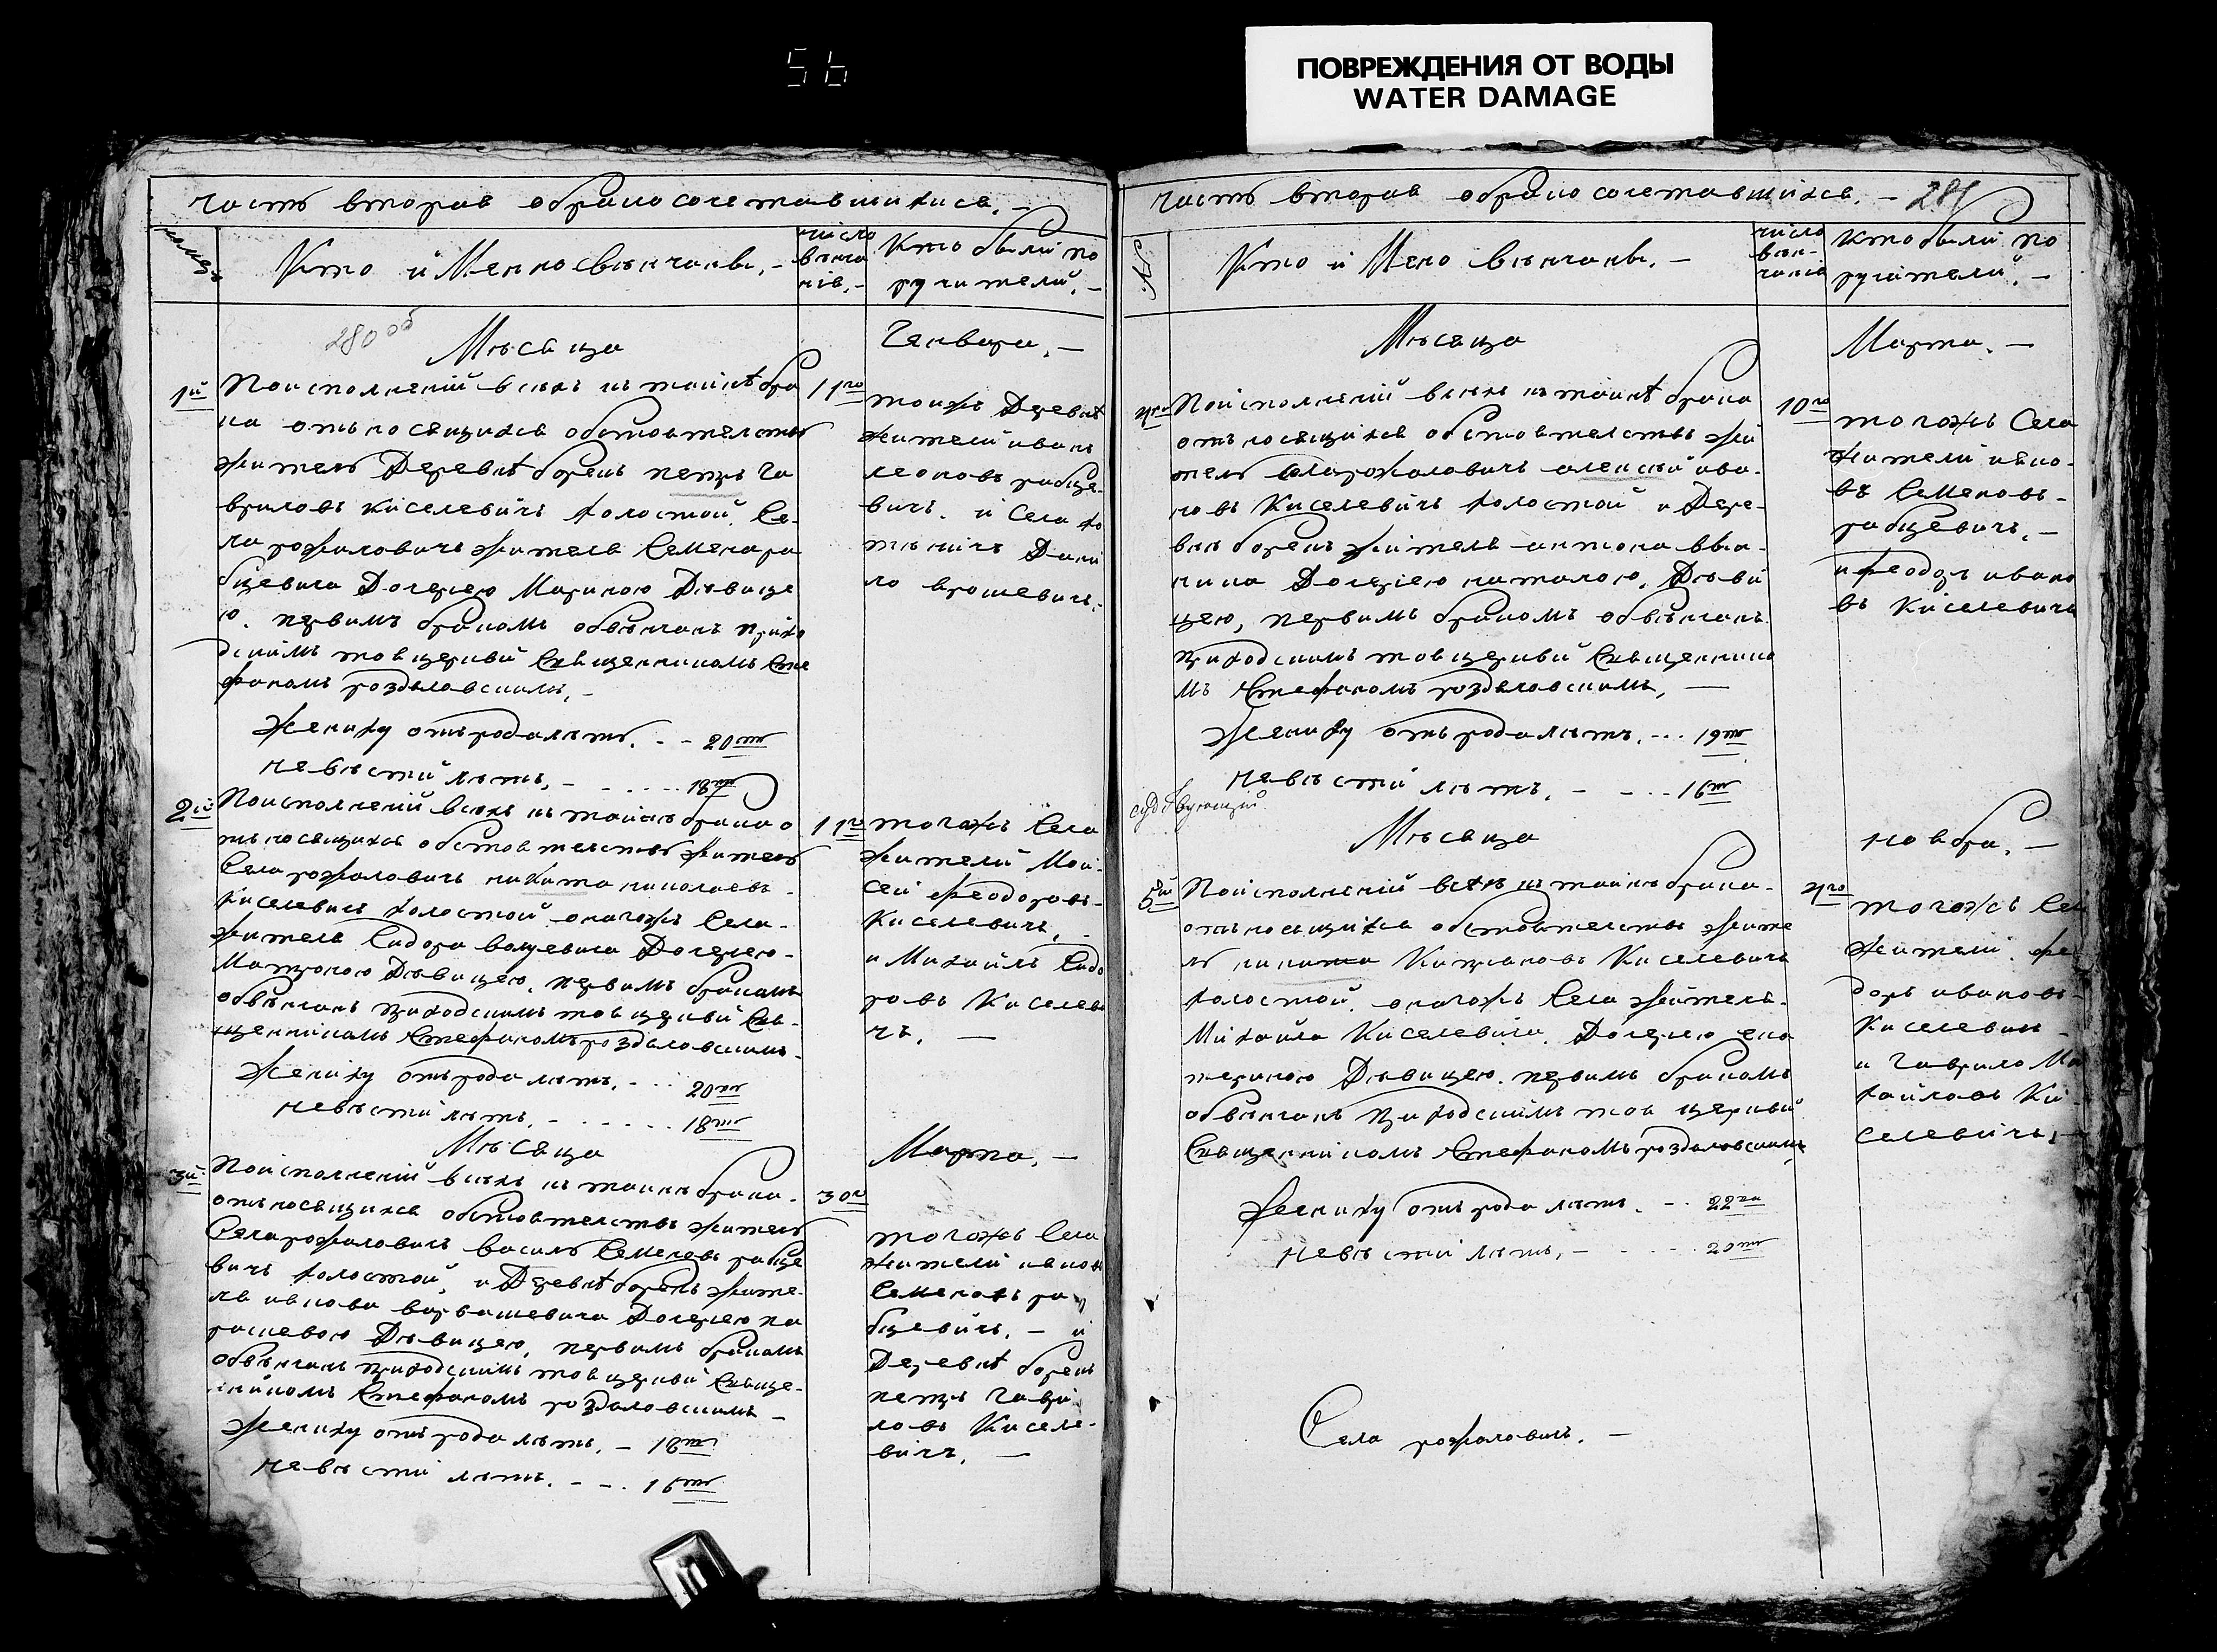 56
ПОВРЕЖДЕНИЯ ОТ ВОДЫ
WATER DAMAGE
часть вторая о бракосочетавшихся. —
номеръ
Кто и Менно свѣнчаны. —
число
вѣнча
нія. —
Кто были по
ручители. —
280 об
Мѣсяца
Генваря. —
1й
По исполненій всѣхъ къ тайнѣ бра
ка относящихся обстоятельствъ
житель Деревнѣ борекъ петръ Га
вриловъ Киселевичъ холостой, Се-
ла рожаловичъ жителя Семена ра
бцевича Дочерею Мариною Дѣвице
ю. первымъ бракомъ обвѣнчанъ прихо
дскимъ тоя церкви Священникомъ Сте
фаномъ роздяловскимъ. —
Жениху отъ рода лѣтъ. - - 20ть
невѣстѣ лѣтъ. - - 18ть
11го
тоижъ Деревнѣ
жители иванъ
леоновъ рабце-
вичъ. и Села хо
тѣничъ Дани
ло ярошевичъ. -
2й
По исполненій всѣхъ къ тайнѣ брака о
тъносящихся обстоятельствъ житель
Села рожаловичъ никита николаевъ -
Киселевичъ холостой онагожъ Села -
жителя Сидора волцевича Дочерею -
Матроною Дѣвицею, первымъ бракомъ
обвѣнчанъ приходскимъ тоя церкви Свя-
щенникомъ Стефаномъ роздяловскимъ. -
Жениху отъ рода лѣтъ. - - 20ть
невѣстѣ лѣтъ. - - 18ть
11го
тогожъ Села
жители Мои-
сей феодоровъ
Киселевичъ. -
и Михаилъ Сидо
ровъ Киселеви
чъ. —
Мѣсяца
Марта. —
3й
По исполненій всѣхъ къ тайнѣ брака -
относящихся обстоятельствъ житель
Села рожаловичъ василь Семеновъ рабце
вичъ холостой, и Деревнѣ борекъ жите-
ля якова варвашевича Дочерею па
расевою Дѣвицею, первымъ бракомъ
обвѣнчанъ приходскимъ тоя церкви Свяще-
нникомъ Стефаномъ роздяловскимъ -
Жениху отъ рода лѣтъ. - 18ть
невѣстѣ лѣтъ. - - 16ть
3го
тогожъ Села
жители яковъ
Семеновъ ра
бцевичъ. - и
Деревнѣ борекъ
петръ Гаври
ловъ Киселе-
вичъ. —
часть вторая о бракосочетавшихся. —
281
№
Кто и Мено вѣнчаны. —
число
вѣн-
чанія
Кто были по
ручители. —
Мѣсяца
Марта. —
4го
По исполненій всѣхъ къ тайнѣ брака
отъносящихся обстоятельствъ жи
тель Села рожаловичъ алексѣй ива-
новъ Киселевичъ холостой и Дере-
внѣ борекъ жителя антона
Дочерею наталею, Дѣви
цею, первымъ бракомъ обвѣнчанъ
приходскимъ тоя церкви Священнико
мъ Стефаномъ роздяловскимъ. —
Жениху отъ рода лѣтъ. - - 19ть
невѣстѣ лѣтъ. - - - 16ть
10го
тогожъ Села
жители яко-
въ Семеновъ -
рабцевичъ. -
и феодоръ ивано
въ Киселевичъ
Мѣсяца
ноября. —
5й
По исполненій всѣхъ къ тайнѣ брака -
относящихся обстоятельствъ жите
ль никита Киселевичъ
холостой, онагожъ Села жителя -
Михаила Киселевича, Дочерею ека
териною Дѣвицею. первымъ бракомъ
обвѣнчанъ приходскимъ тоя церкви
Священникомъ Стефаномъ роздяловскимъ
Жениху отъ рода лѣтъ. - - 22ва
невѣстѣ лѣтъ. - - - 20ть
4го
тогожъ Сел
жители. фе
доръ ивановъ -
Киселевичъ
и Гаврило Ми
хайловъ Ки-
селевичъ. -
Села рожаловичъ. —